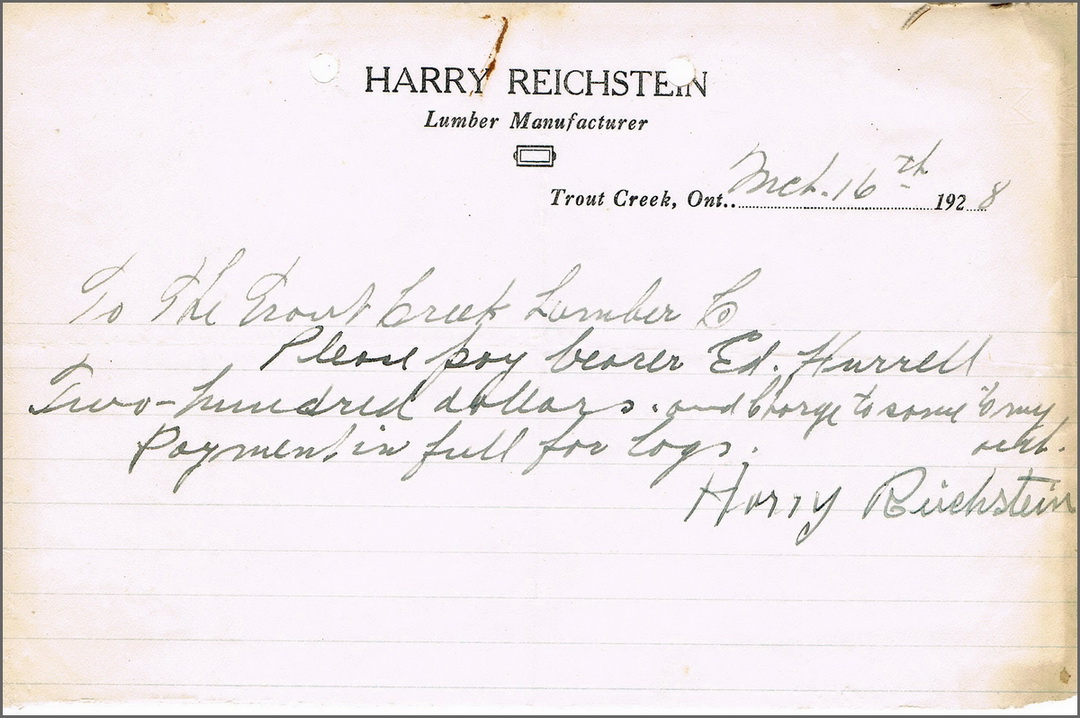 HARRY REICHSTEIN
Lumber Manufacturer
Trout Creek, Ont. Mch. 16th 1928
To The Trout Creek Lumber Co
Please pay bearer Ed. Hurrell
Two-hundred dollars. and Charge to same to my
Payment in full for logs. acct.
Harry Reichstein